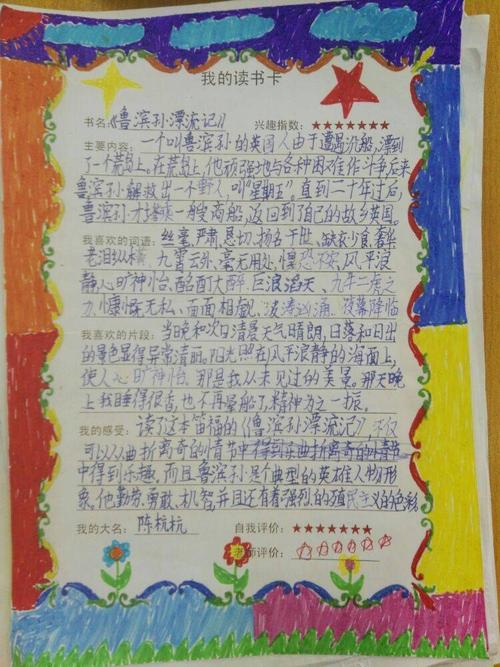 我的读书卡
书名:《鲁滨孙漂流记》 兴趣指数:★★★★★★★
主要内容:一个叫鲁滨孙的英国人由于遭遇沉船,漂到
了一个荒岛上。在荒岛上,他顽强地与各种困难作斗争后来
鲁滨孙解救出一个野人,叫"星期五"。直到二十年过后,
鲁滨孙才搭乘一艘商船,返回到了自己的故乡英国。
我喜欢的词语:丝毫,严肃,恳切,扬名于世、缺衣少食,奢华
老泪纵横,九霄云外,毫无用处,惶恐不安,风平浪
静心旷神怡、酩酊大醉,巨浪滔天、九牛二虎之
力、慷慨无私、面面相觑,波涛汹涌、夜幕降临
我喜欢的片段:当晚和次日清晨天气晴朗,日落和日出
的景色显得异常清丽。阳光照在风平浪静的海面上,
使人心旷神怡。那是我从未见过的美景。那天晚
上我睡得很香,也不再晕船了,精神为之一振。
我的感受:读了这本笛福的《鲁滨孙漂流记》,不仅
可以从曲折离奇的情节中得到乐曲折离奇的情节
中得到乐趣,而且鲁滨孙是个典型的英雄人物形
象。他勤劳、勇敢、机智,并且还有着强烈的殖民主义的色彩
我的大名:陈杭杭 自我评价:★★★★★★★
老师评价:☆☆☆☆☆☆